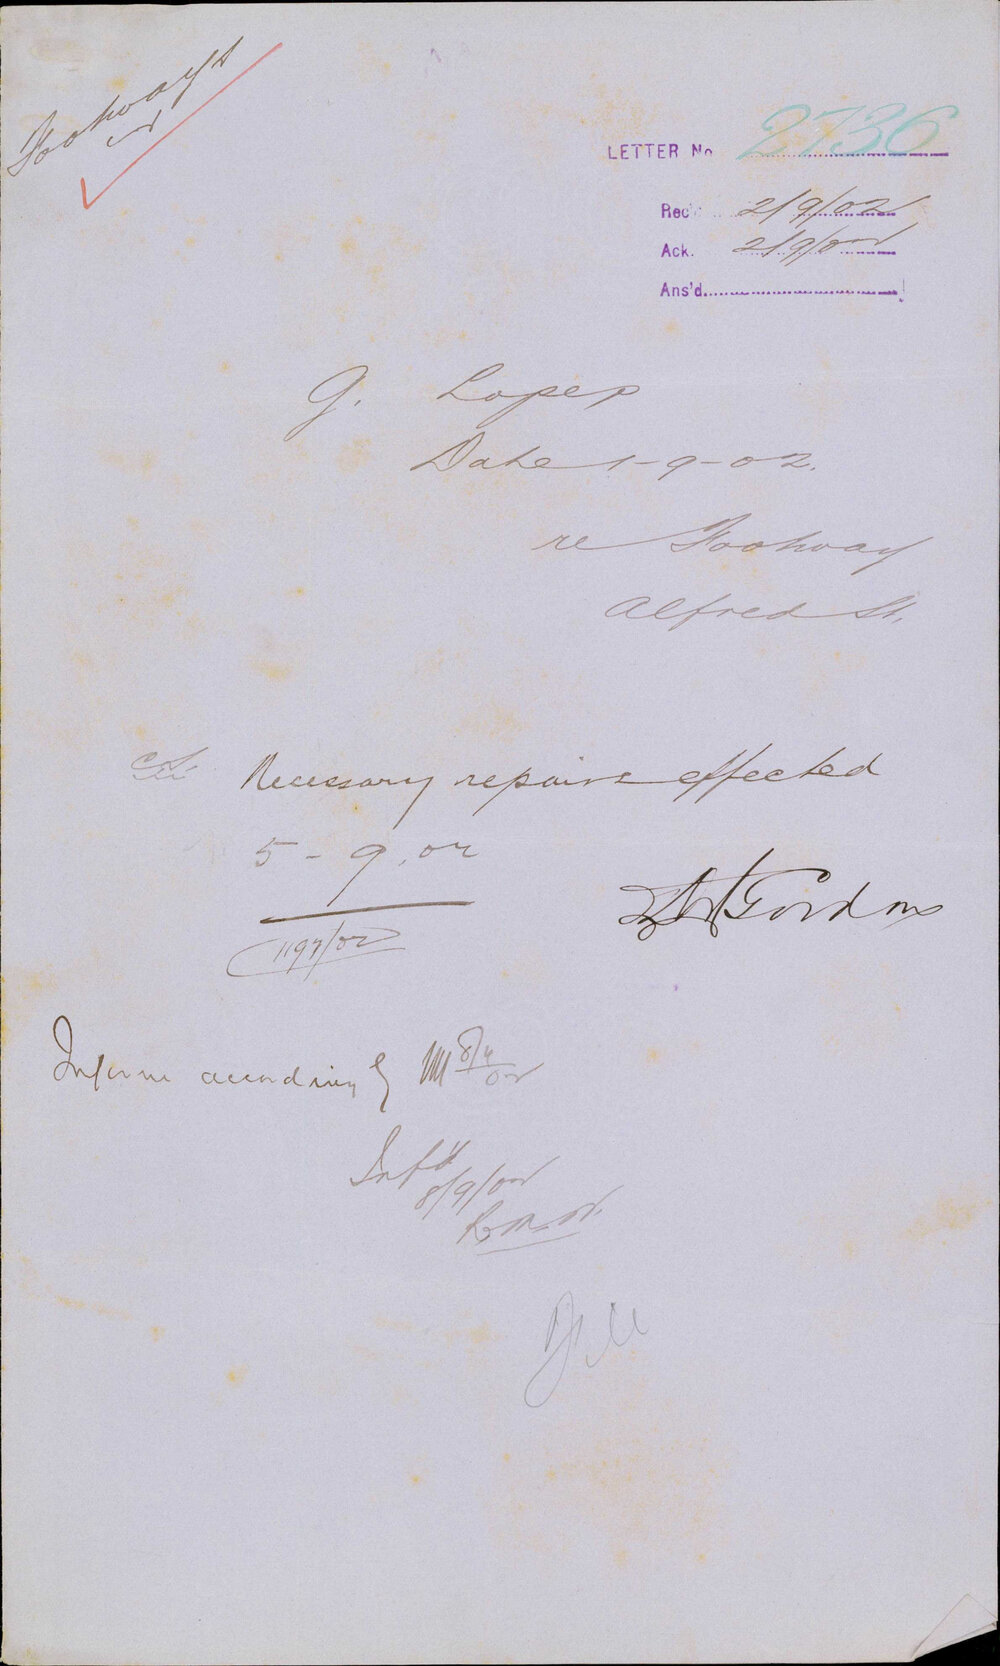 Footways
LETTER No 2736
Rec'd 2/9/02
Ack. 2/9/02
Ans'd
J. Lopes
Date 1-9-02.
re Footway
Alfred St.
Necessary repairs effected
5-9.02
Gordon
1197/02
Inform accordingly
Inf'd
8/9/02